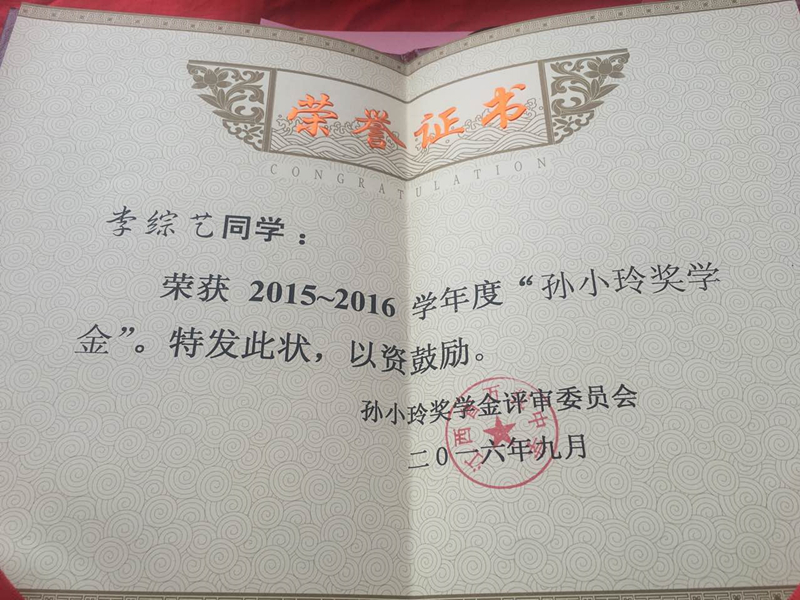 荣誉证书
CONGRATULATION
李综艺同学：
荣获 2015~2016 学年度“孙小玲奖学
金”。特发此状，以资鼓励。
孙小玲奖学金评审委员会
二0一六年九月
江西
中学